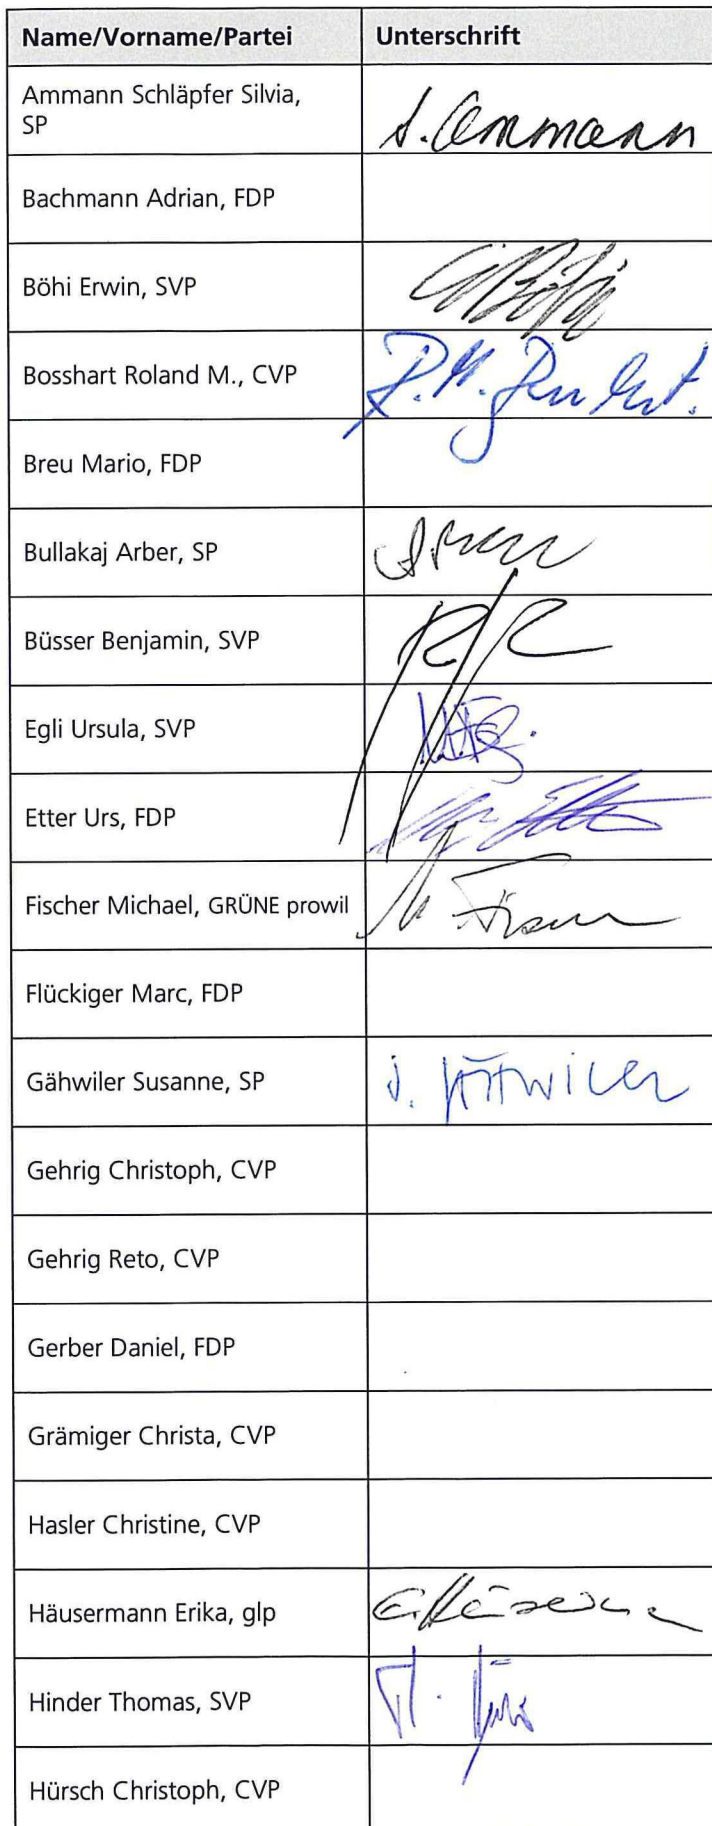 Name/Vorname/Partei Unterschrift
Ammann Schläpfer Silvia,
SP
S. Ammann
Bachmann Adrian, FDP
Böhi Erwin, SVP
Bosshart Roland M., CVP
Breu Mario, FDP
Bullakaj Arber, SP
Büsser Benjamin, SVP
Egli Ursula, SVP
Etter Urs, FDP
Fischer Michael, GRÜNE prowil
Flückiger Marc, FDP
Gähwiler Susanne, SP
Gehrig Christoph, CVP
Gehrig Reto, CVP
Gerber Daniel, FDP
Grämiger Christa, CVP
Hasler Christine, CVP
Häusermann Erika, glp
Hinder Thomas, SVP
Hürsch Christoph, CVP